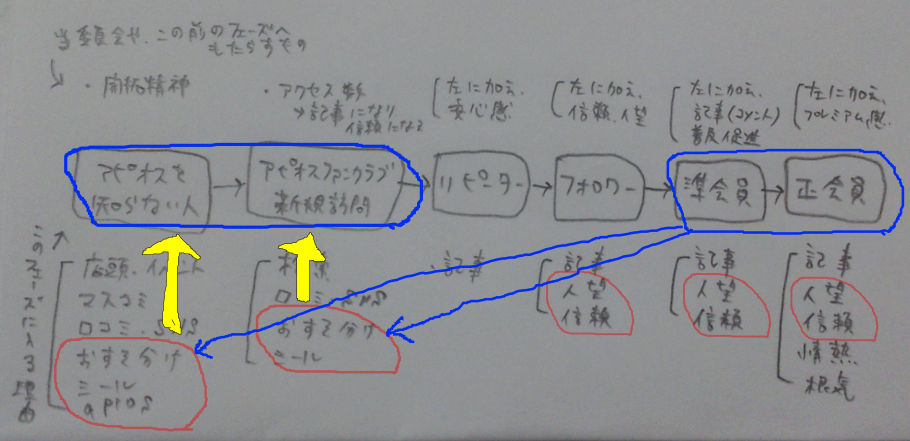 当委員会や、この前のフェーズへ
もたらすもの
・開拓精神
・アクセス数
→記事になり、
信頼になる
左に加え、
安心感
左に加え、
信頼、人望
左に加え、
記事(コメント)
普及促進
左に加え、
プレミアム感
アピオスを
知らない人
アピオスファンクラブ
新規訪問
リピーター
フォロワー
準会員
正会員
このフェーズに入る理由
店頭、イベント
マスコミ
口コミ、SNS
おすそ分け
ミール
apios
検索
口コミ、SNS
おすそ分け
ミール
・記事
記事
人望
信頼
記事
人望
信頼
記事
人望
信頼
情熱
根気